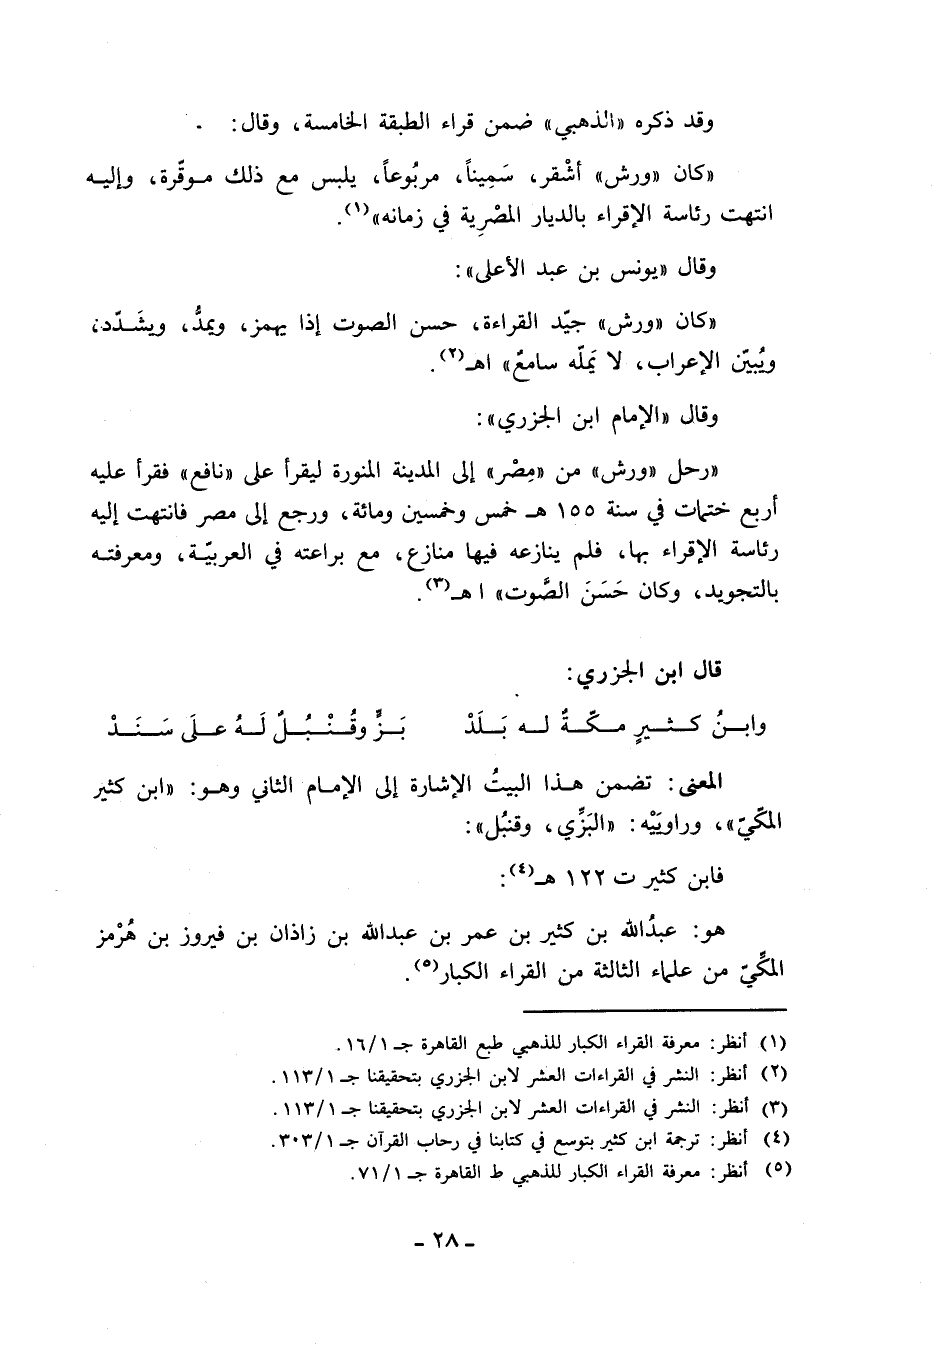 وقد ذكره «الذهبي» ضمن قراء الطبقة الخامسة، وقال:
«كان «ورش» أشْقر، سَمِيناً، مربُوعاً، يلبس مع ذلك موقّرة، وإليه
انتهت رئاسة الإقراء بالديار المصْرِية في زمانه»(١).
وقال «يونس بن عبد الأعلى»:
«كان «ورش» جيّد القراءة، حسن الصوت إذا يهمز، ويمدُّ، ويشَدّد،
ويُبيّن الإعراب، لا يَملّه سامعٌ» اهـ(٢).
وقال «الإمام ابن الجزري»:
«رحل «ورش» من «مِصْر» إلى المدينة المنورة ليقرأ على «نافع» فقرأ عليه
أربع ختمات في سنة ١٥٥ هـ خمس وخمسين ومائة، ورجع إلى مصر فانتهت إليه
رئاسة الإقراء بها، فلم ينازعه فيها منازع، مع براعته في العربيّة، ومعرفته
بالتجويد، وكان حَسَنَ الصَّوت» ا هـ(٣).
قال ابن الجزري:
وابـنُ كـثـيرٍ مـكّـةٌ لـه بَـلَدْ بَـزٍّ وقُـنْـبُـلٌ لَـهُ عـلَى سَـنَـدْ
المعنى: تضمن هـذا البيتُ الإشارة إلى الإمام الثاني وهـو: «ابن كثير
المكّيّ»، وراويَيْه: «البَزِّي، وقنبُل»:
فابن كثير ت ١٢٢ هـ(٤):
هو: عبدُالله بن كثير بن عمر بن عبدالله بن زاذان بن فيروز بن هُرْمز
المكِّيّ من علماء الثالثة من القراء الكبار(٥).
(١) أنظر: معرفة القراء الكبار للذهبي طبع القاهرة جـ ١/١٦.
(٢) أنظر: النشر في القراءات العشر لابن الجزري بتحقيقنا جـ ١/١١٣.
(٣) أنظر: النشر في القراءات العشر لابن الجزري بتحقيقنا جـ ١/١١٣.
(٤) أنظر: ترجمة ابن كثير بتوسع في كتابنا في رحاب القرآن جـ ١/٣٠٣.
(٥) أنظر: معرفة القراء الكبار للذهبي ط القاهرة جـ ١/٧١.
ـ ٢٨ ـ